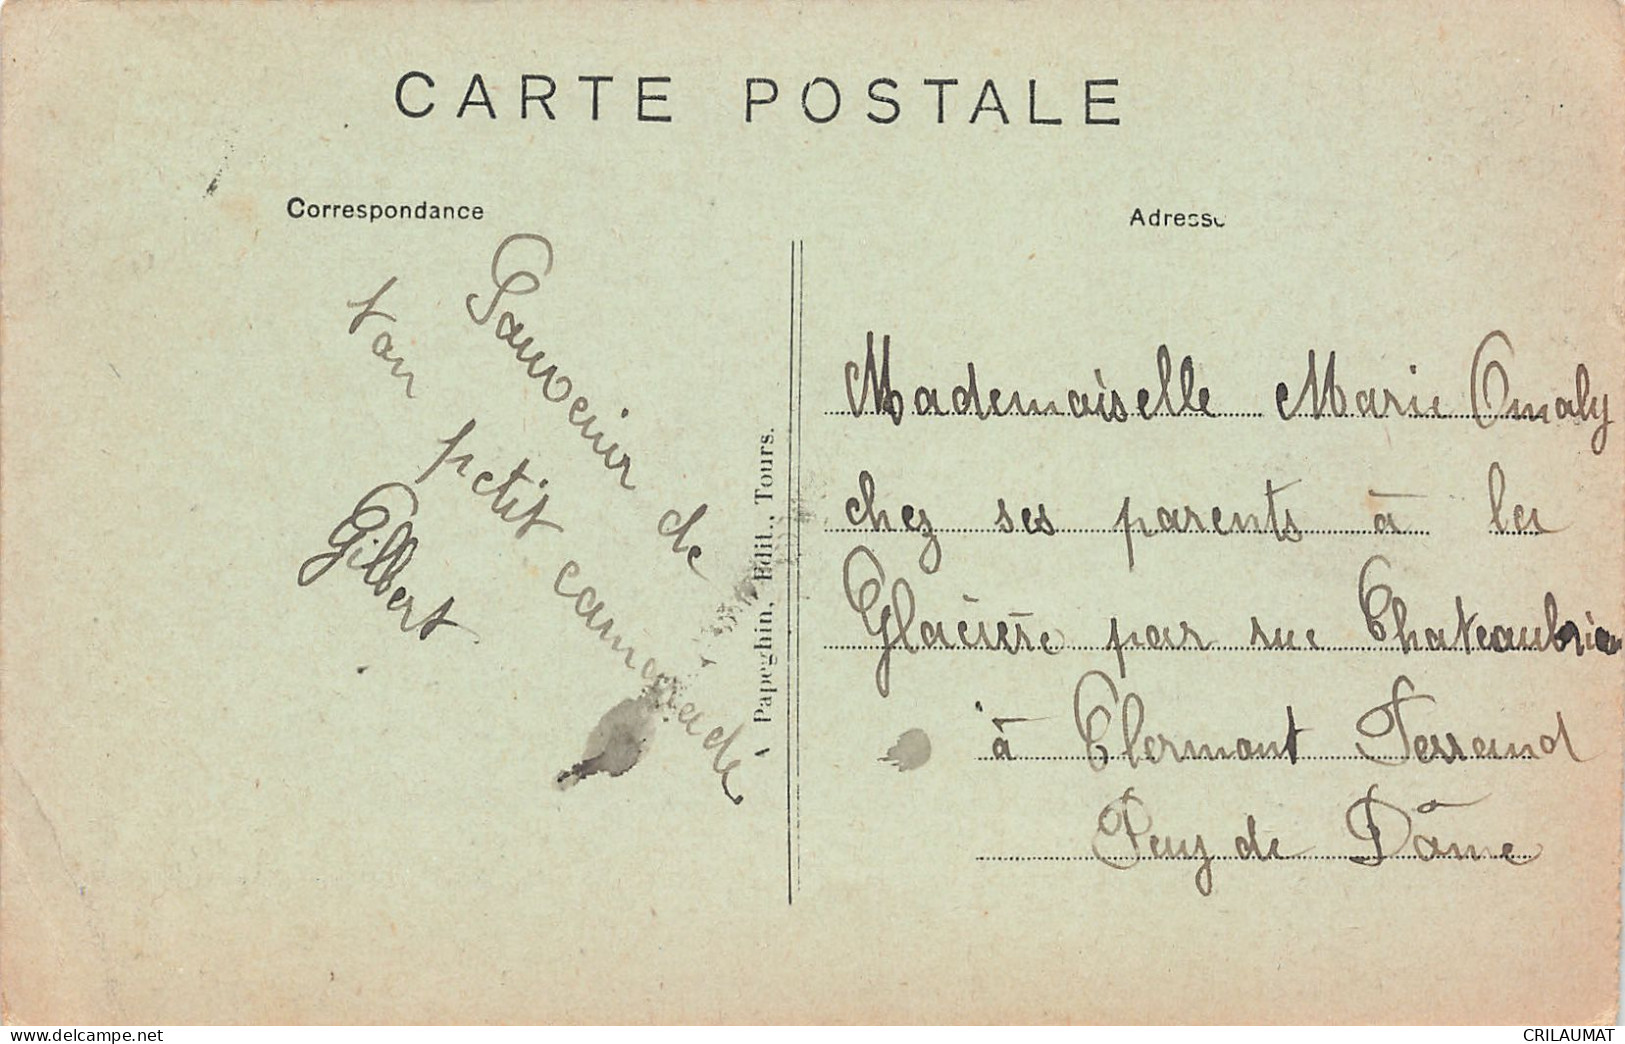 CARTE POSTALE
Correspondance
Adresse
Souvenir de
ton petit camarade
Gilbert
A Papeghin, Edit., Tours.
Mademoiselle Marie Omaly
chez ses parents à la
Glacière par rue Chateaubrie
à Clermont Ferrand
Puy de Dôme
www.delcampe.net
CRILAUMAT